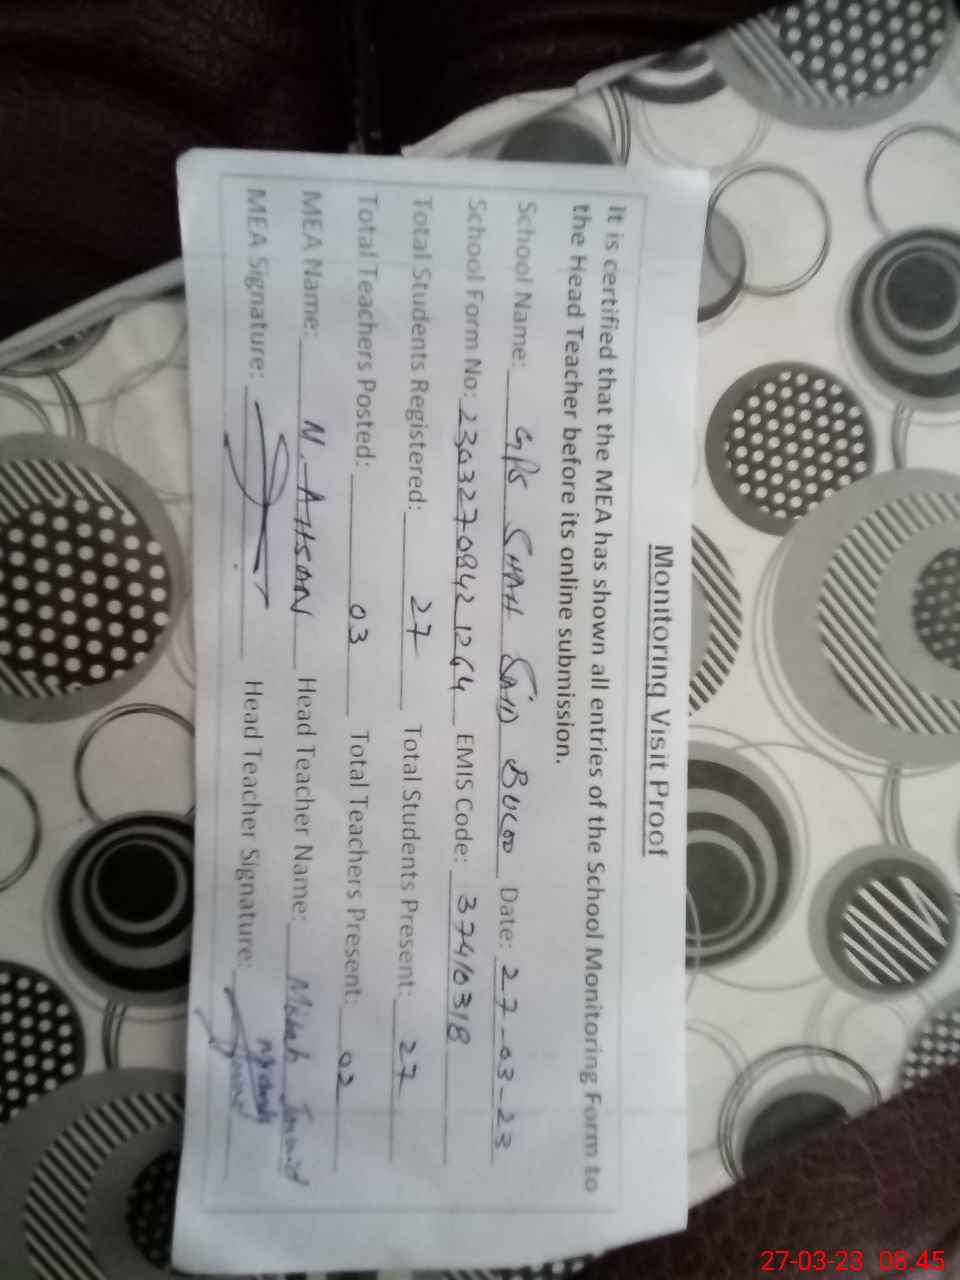 Monitoring Visit Proof
It is certified that the MEA has shown all entries of the School Monitoring Form to
the Head Teacher before its online submission.
School Name: GPS SHAH SAID BUCOO Date: 27-03-23
School Form No: 230327084212644 EMIS Code: 37410318
Total Students Registered: 27 Total Students Present: 27
Total Teachers Posted: 03 Total Teachers Present: 02
MEA Name: N. AHSAN Head Teacher Name: Javaid
MEA Signature: Head Teacher Signature:
27-03-23 08:45